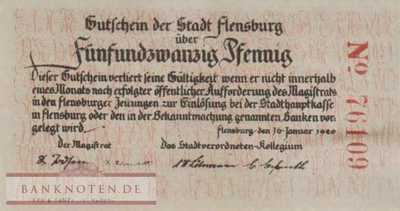 Gutschein der Stadt Flensburg
über
Fünfundzwanzig Pfennig
Dieser Gutschein verliert seine Gültigkeit wenn er nicht innerhalb
eines Monats nach erfolgter öffentlicher Aufforderung des Magistrats
in den Flensburger Zeitungen zur Einlösung bei der Stadthauptkasse
in Flensburg oder den in der Bekanntmachung genannten Banken vor-
gelegt wird.
Flensburg, den 16. Januar 1920
Der Magistrat Das Stadtverordneten-Kollegium
BANKNOTEN.DE